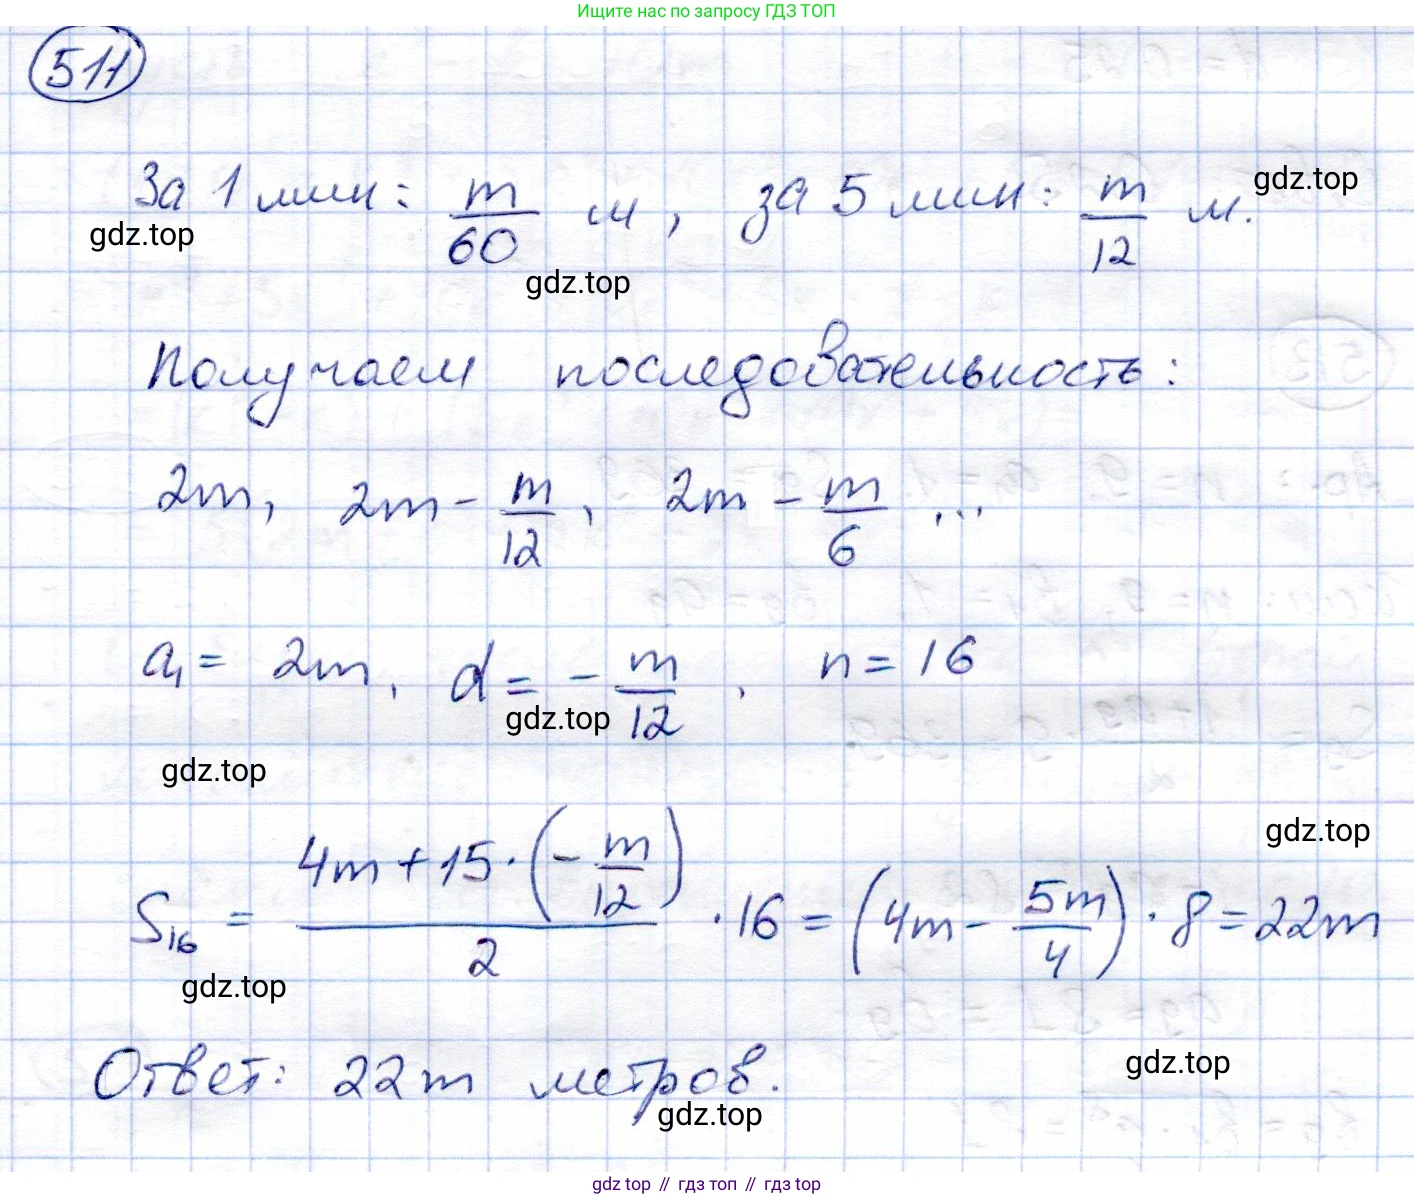 Ищите нас по запросу ГДЗ ТОП
511
За 1 мин: m/60 м, за 5 мин: m/12 м.
gdz.top
gdz.top
gdz.top
Получаем последовательность:
2m, 2m - m/12, 2m - m/6, ...
a₁ = 2m, d = -m/12, n = 16
gdz.top
gdz.top
gdz.top
S₁₆ = (4m + 15 · (-m/12))/2 · 16 = (4m - 5m/4) · 8 = 22m
gdz.top
Ответ: 22m метров.
gdz.top
gdz.top
gdz top // гдз топ // gdz top